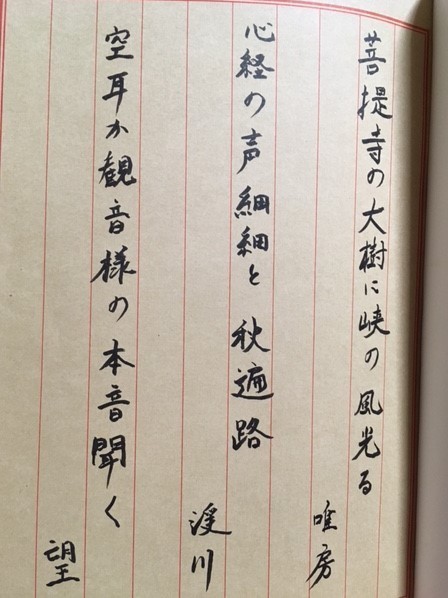 菩提寺の大樹に峡の風光る
唯房
心経の声細細と秋遍路
渓川
空耳か観音様の本音聞く
望